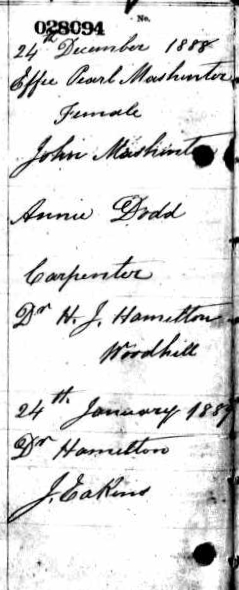 No.
028094
24th December 1888
Effie Pearl Mashinter
Female
John Mashinter
Annie Dodd
Carpenter
Dr H. J. Hamilton
Woodhill
24th January 1889
Dr Hamilton
J. Eakins